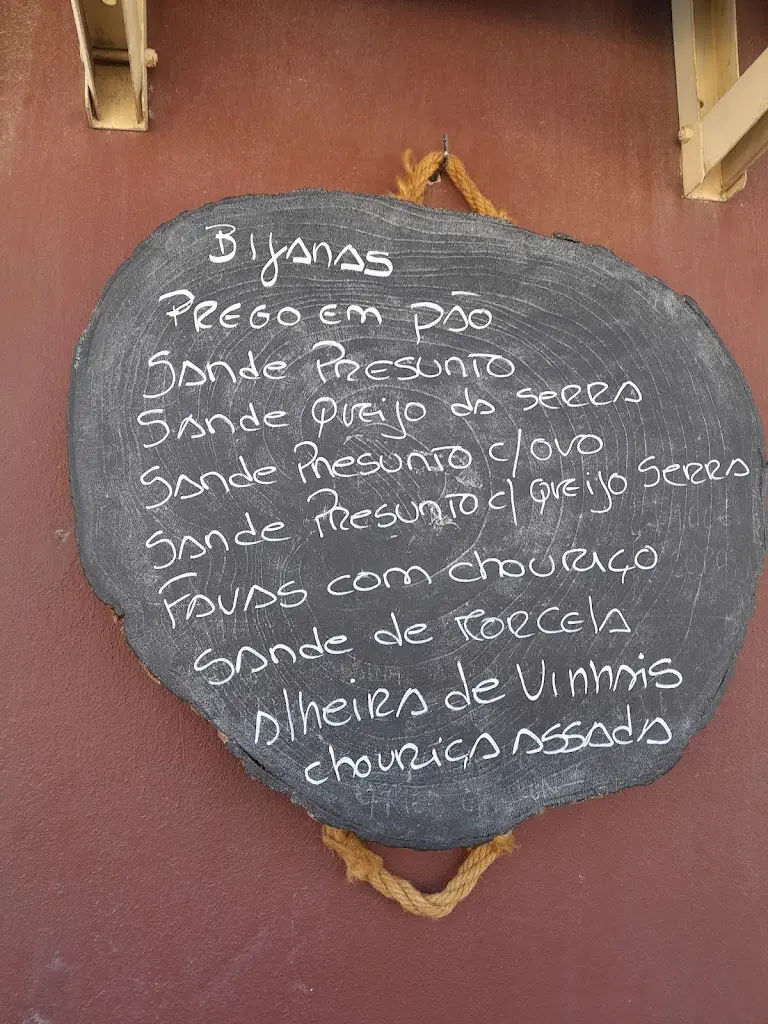 Bifanas
Prego em pão
Sande Presunto
Sande Queijo da serra
Sande Presunto c/ovo
Sande Presunto c/ Queijo Serra
Favas com chouriço
Sande de Morcela
Alheira de Vinhais
chouriça assada